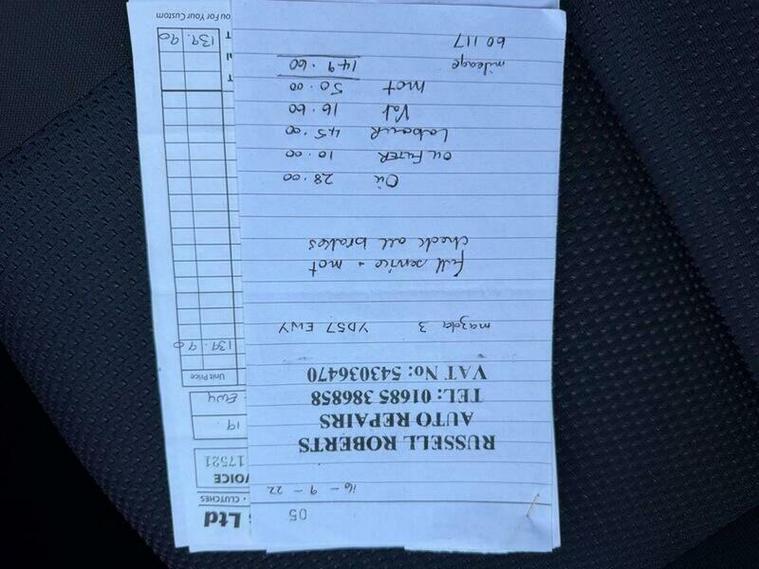 05
16 - 9 - 22
RUSSELL ROBERTS
AUTO REPAIRS
TEL: 01685 386858
VAT No: 543036470
mazda 3 YD57 EWY
full service + mot
check all brakes
Oil 28.00
Oil FILTER 10.00
Labour 45.00
Vat 16.60
Mot 50.00
149.60
mileage
60117
Ltd
• CLUTCHES •
17521
19
EWY
Unit Price
139.90
139.90
ou For Your Custom